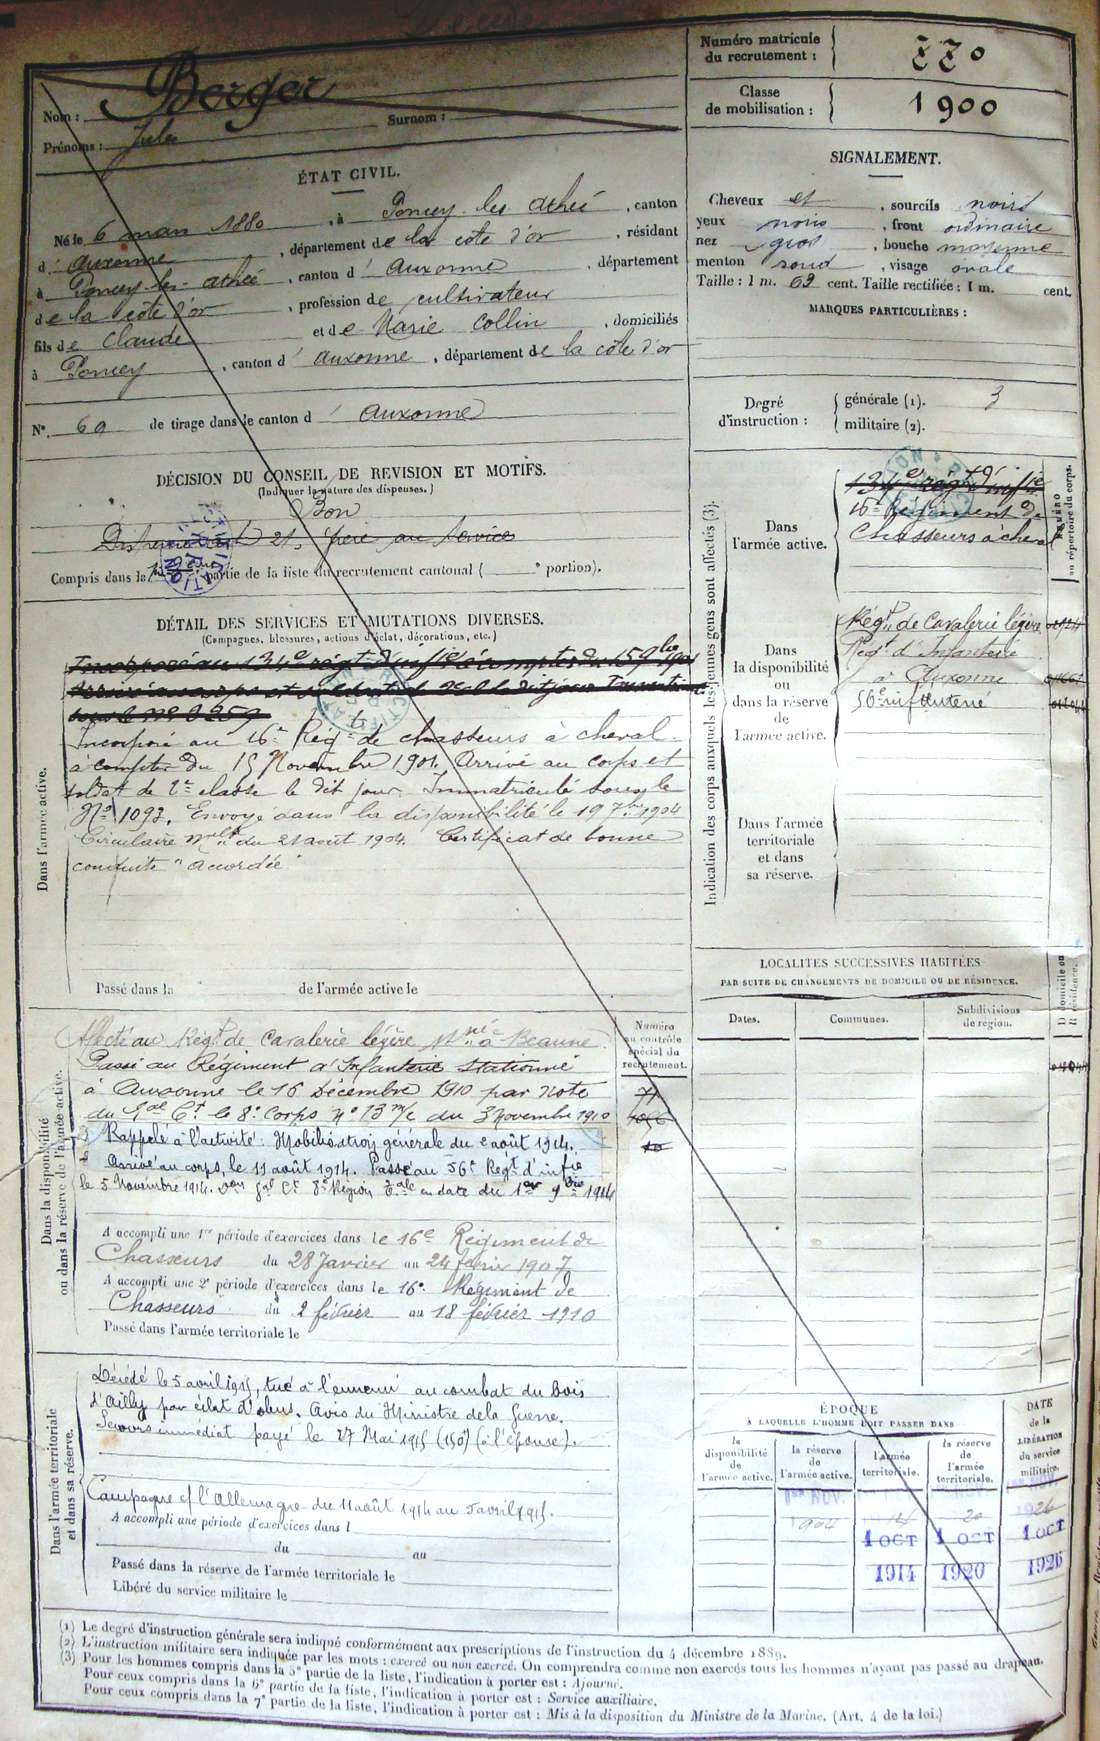 Numéro matricule
du recrutement : 770
Classe
de mobilisation : 1900
Nom : Berger
Prénoms : Jules Surnom :
ÉTAT CIVIL.
Né le 6 mars 1880, à Poncey-les-Athée, canton
d'Auxonne, département de la Côte d'or, résidant
à Poncey-les-Athée, canton d'Auxonne, département
de la Côte d'or, profession de cultivateur
fils de Claude et de Marie Collin, domiciliés
à Poncey, canton d'Auxonne, département de la Côte d'or
N° 69 de tirage dans le canton d'Auxonne
SIGNALEMENT.
Cheveux et, sourcils noirs
yeux noirs, front ordinaire
nez gros, bouche moyenne
menton rond, visage ovale
Taille : 1 m. 63 cent. Taille rectifiée : 1 m. cent.
MARQUES PARTICULIÈRES :
Degré
d'instruction :
générale (1). 3
militaire (2).
DÉCISION DU CONSEIL DE REVISION ET MOTIFS.
(Indiquer la nature des dispenses.)
Bon
21. frère au service
Compris dans la partie de la liste du recrutement cantonal ( ° portion).
DÉTAIL DES SERVICES ET MUTATIONS DIVERSES.
(Campagnes, blessures, actions d'éclat, décorations, etc.)
Dans l'armée active.
Incorporé au 134e régt d'inf
Incorporé au 16e Régt de chasseurs à cheval
à compter du 15 Novembre 1901. Arrivé au corps et
soldat de 2e classe le dit jour. Immatriculé sous le
N° 1097. Envoyé dans la disponibilité le 19 7bre 1904
Circulaire Mlle du 21 août 1904. Certificat de bonne
conduite "accordé"
Passé dans la de l'armée active le
Indication des corps auxquels les jeunes gens sont affectés (3).
NUMÉRO
au répertoire du corps.
Dans
l'armée active.
134e régt d'inf
16e Régiment de
Chasseurs à cheval
Dans
la disponibilité
ou
dans la réserve
de
l'armée active.
Régt de Cavalerie légère
Régt d'Infanterie
à Auxonne
56e infanterie
Dans l'armée
territoriale
et dans
sa réserve.
LOCALITÉS SUCCESSIVES HABITÉES
PAR SUITE DE CHANGEMENTS DE DOMICILE OU DE RÉSIDENCE.
Dates. Communes. Subdivisions
de région.
D domicile ou
R résidence.
Dans la disponibilité
ou dans la réserve de l'armée active.
Numéro
au contrôle
spécial du
recrutement.
Affecté au Régt de Cavalerie légère stné à Beaune
Passé au Régiment d'Infanterie stationné
à Auxonne le 16 Décembre 1910 par Note
du Gal Ct le 8e Corps N° 13 m/c du 3 Novembre 1910
Rappelé à l'activité : Mobilisation générale du 2 août 1914.
Arrivé au corps, le 11 août 1914. Passé au 56e Régt d'infie
le 5 Novembre 1914. Gal Ct 8e Région en date du 1er 9bre 1914
A accompli une 1re période d'exercices dans le 16e Régiment de
Chasseurs du 28 Janvier au 24 février 1907
A accompli une 2e période d'exercices dans le 16e Régiment de
Chasseurs du 2 février au 18 février 1910
Passé dans l'armée territoriale le
Dans l'armée territoriale
et dans sa réserve.
Décédé le 5 avril 1915, tué à l'ennemi au combat du bois
d'Ailly par éclat d'obus. Avis du Ministre de la Guerre.
Secours immédiat payé le 27 Mai 1915 (150f) (à l'épouse).
Campagne c/ l'Allemagne du 11 août 1914 au 5 avril 1915.
A accompli une période d'exercices dans l
du au
Passé dans la réserve de l'armée territoriale le
Libéré du service militaire le
ÉPOQUE
À LAQUELLE L'HOMME DOIT PASSER DANS
la
disponibilité
de
l'armée active.
la réserve
de
l'armée active.
l'armée
territoriale.
la réserve
de
l'armée
territoriale.
DATE
de la
LIBÉRATION
du service
militaire.
1er NOV.
1904 14 20 1926
1 OCT 1 OCT 1 OCT
1914 1920 1926
(1) Le degré d'instruction générale sera indiqué conformément aux prescriptions de l'instruction du 4 décembre 1889.
(2) L'instruction militaire sera indiquée par les mots : exercé ou non exercé. On comprendra comme non exercés tous les hommes n'ayant pas passé au drapeau.
(3) Pour les hommes compris dans la 5e partie de la liste, l'indication à porter est : Ajourné.
Pour ceux compris dans la 6e partie de la liste, l'indication à porter est : Service auxiliaire.
Pour ceux compris dans la 7e partie de la liste, l'indication à porter est : Mis à la disposition du Ministre de la Marine. (Art. 4 de la loi.)